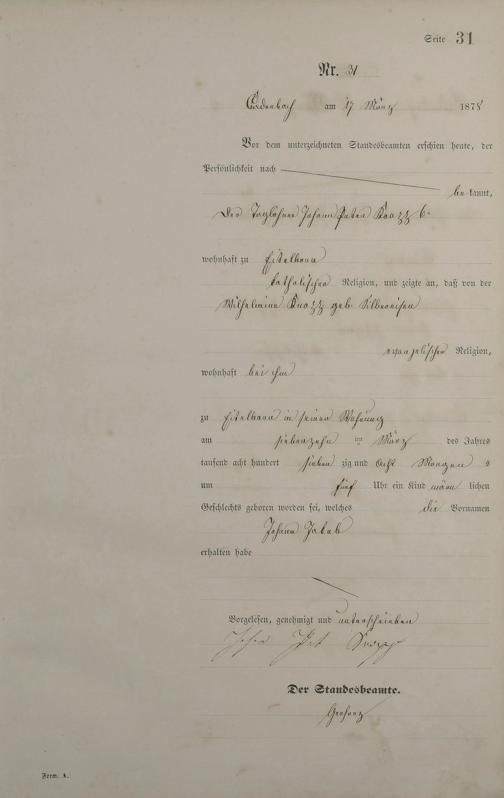 Seite 31
Nr. 31
Cadenbach am 17 März 1878
Vor dem unterzeichneten Standesbeamten erschien heute, der
Persönlichkeit nach
bekannt,
der Taglöhner Johann Peter
wohnhaft zu Eitelborn
katholischer Religion, und zeigte an, daß von der
Wilhelmine geb. Silbereisen
evangelischer Religion,
wohnhaft bei ihm
zu Eitelborn in seiner Wohnung
am siebenzehn ten März des Jahres
tausend acht hundert sieben zig und acht Morgen s
um fünf Uhr ein Kind männ lichen
Geschlechts geboren worden sei, welches die Vornamen
Johann Jakob
erhalten habe
Vorgelesen, genehmigt und unterschrieben
Johan Pet
Der Standesbeamte.
Form. A.